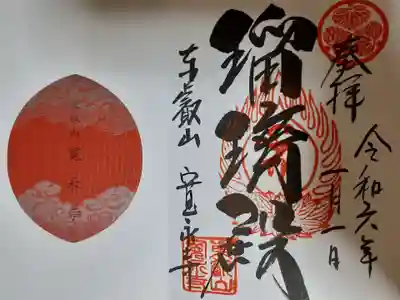 奉拝
令和六年
一月一日
瑠璃殿
東叡山
寛永寺
東叡山 寛永寺